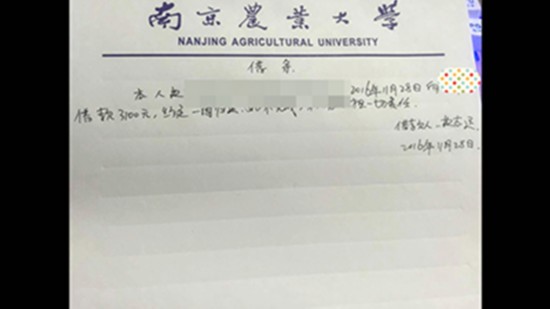 南京農業大學
NANJING AGRICULTURAL UNIVERSITY
借条
本人赵 2016年11月28日向
借款3100元, 约定一周归还 担一切责任
借款人
2016年11月28日